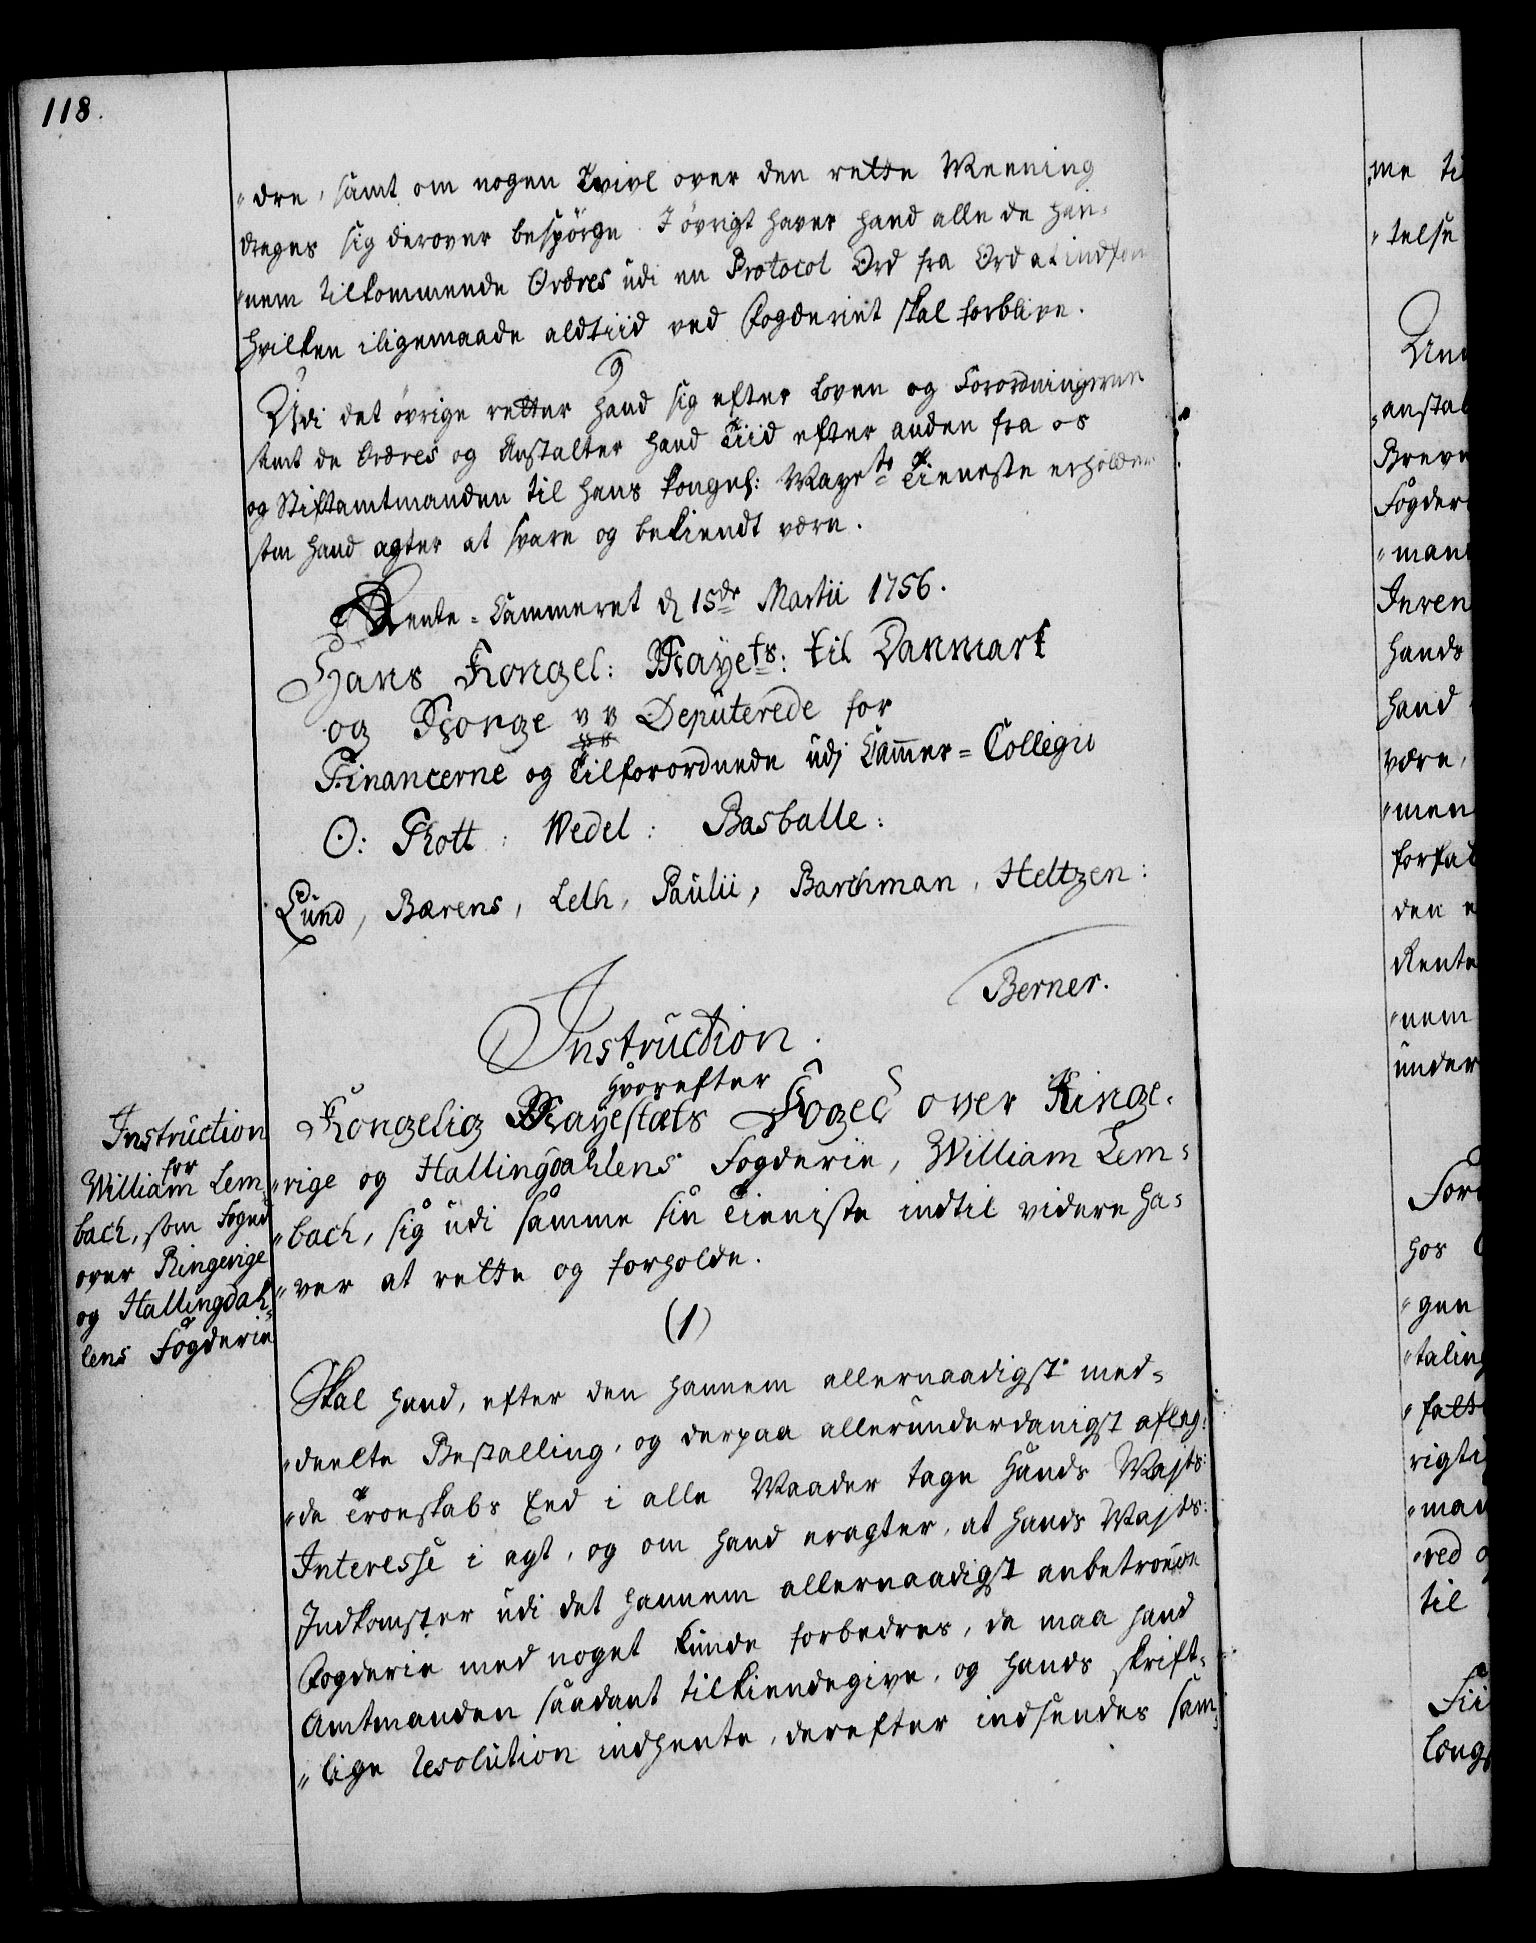 118.
"dre, samt om nogen Tvivl over den rette Meening
dreges sig derover bespörge. I övrigt haver hand alle de han-
"nem tilkommende Ordres udi en Protocol Ord fra Ord at indföre
hvilken iligemaade aldtiid ved Fogderiet skal forblive.
9
Udi det övrige retter hand sig efter Loven og Forordningerne
samt de Ordres og Anstalter hand Tiid efter anden fra os
og Stiftamtmanden til Hans Kongel: Mayets Tieneste erholder
som hand agter at svare og bekiendt være.
Rente-Cammeret d 15de Martii 1756.
Hans Kongel: Mayets: til Danmark
og Norge p p Deputerede for
Financerne og Tilforordnede udj Cammer=Collegio
O: Thott: Wedel: Basballe:
Lund, Bærens, Leth, Paulii, Barchman, Heltzen:
Berner.
Instruction.
Hvorefter
Kongelig Mayestæts Foged over Ringe-
"rige og Hallingdahlens Fogderie, William Lem=
"bach, sig udi samme sin Tieniste indtil videre ha=
"ver at rette og forholde.
Instruction
for
William Lem
bach, som Foged
over Ringerige
og Hallingdah=
lens Fogderie
(1)
Skal hand, efter den hannem allernaadigst med=
"deelte Bestalling, og derpaa allerunderdanigst aflag:
"de Troeskabs Eed i alle Maader tage Hands Majts:
Interesse i agt, og om hand eragter, at Hands Majts:
Indkomster udi det hannem allernaadigst anbetroede
Fogderie med noget kunde forbedres, da maa hand
Amtmanden saadant tilkiendegive, og hands skrift=
"lige Resolution indhente, derefter indsendes sam=
me ti
"telse
Und
anstal
Breve
Fogder
"man
Inven
hands
hand
være,
"men
forfal
den e
Rente
"nem
under
For
hos
"gen
"taling
"falt
rigti
"man
"ved o
til
Fii
længs